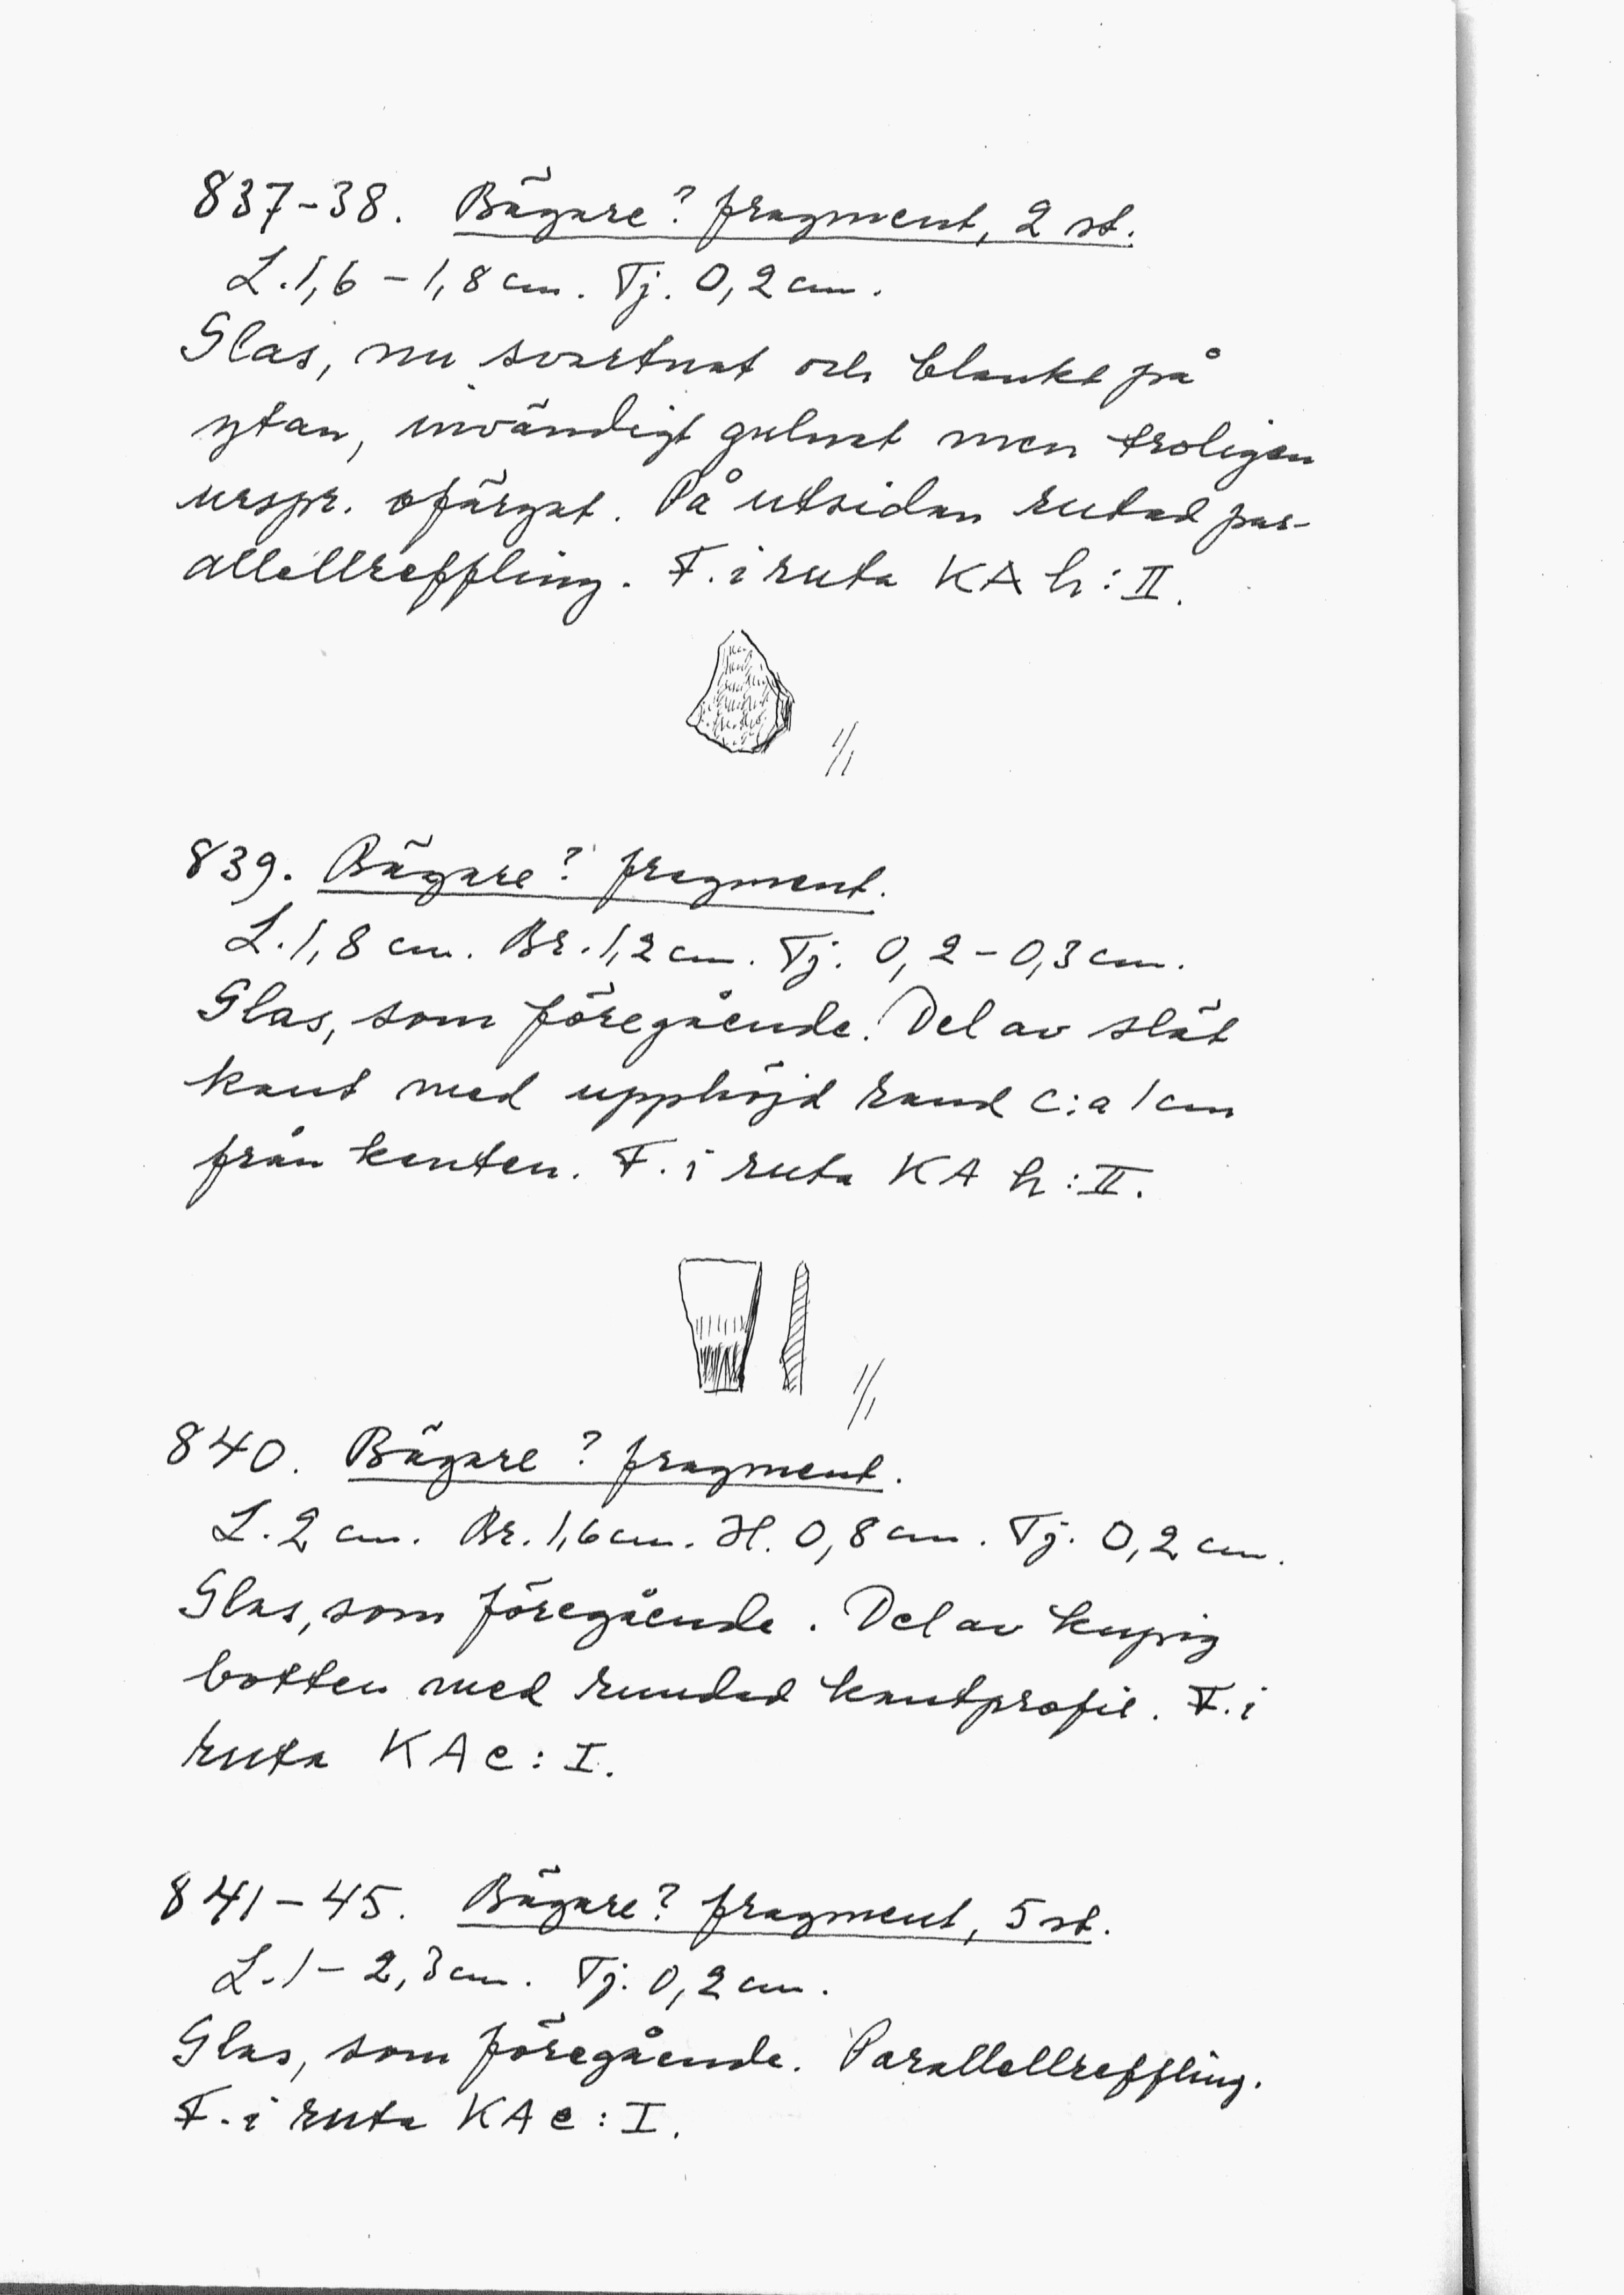 837-38. Bägare? fragment, 2 st.
L. 1,6 - 1,8 cm. Tj. 0,2 cm.
Glas, nu svartnat och blankt på
ytan, invändigt gulnat men troligen
urspr. ofärgat. På utsidan rutad par-
allellreffling. F. i ruta KA h : II.
1/1
839. Bägare? fragment.
L. 1,8 cm. Br. 1,2 cm. Tj. 0,2 - 0,3 cm.
Glas, som föregående. Del av slät
kant med upphöjd rand c:a 1 cm
från kanten. F. i ruta KA h : II.
1/1
840. Bägare? fragment.
L. 2 cm. Br. 1,6 cm. H. 0,8 cm. Tj. 0,2 cm.
Glas, som föregående. Del av kupig
botten med rundad kantprofil. F. i
ruta KA e : I.
841-45. Bägare? fragment, 5 st.
L. 1 - 2,3 cm. Tj. 0,2 cm.
Glas, som föregående. Parallellreffling.
F. i ruta KA e : I.